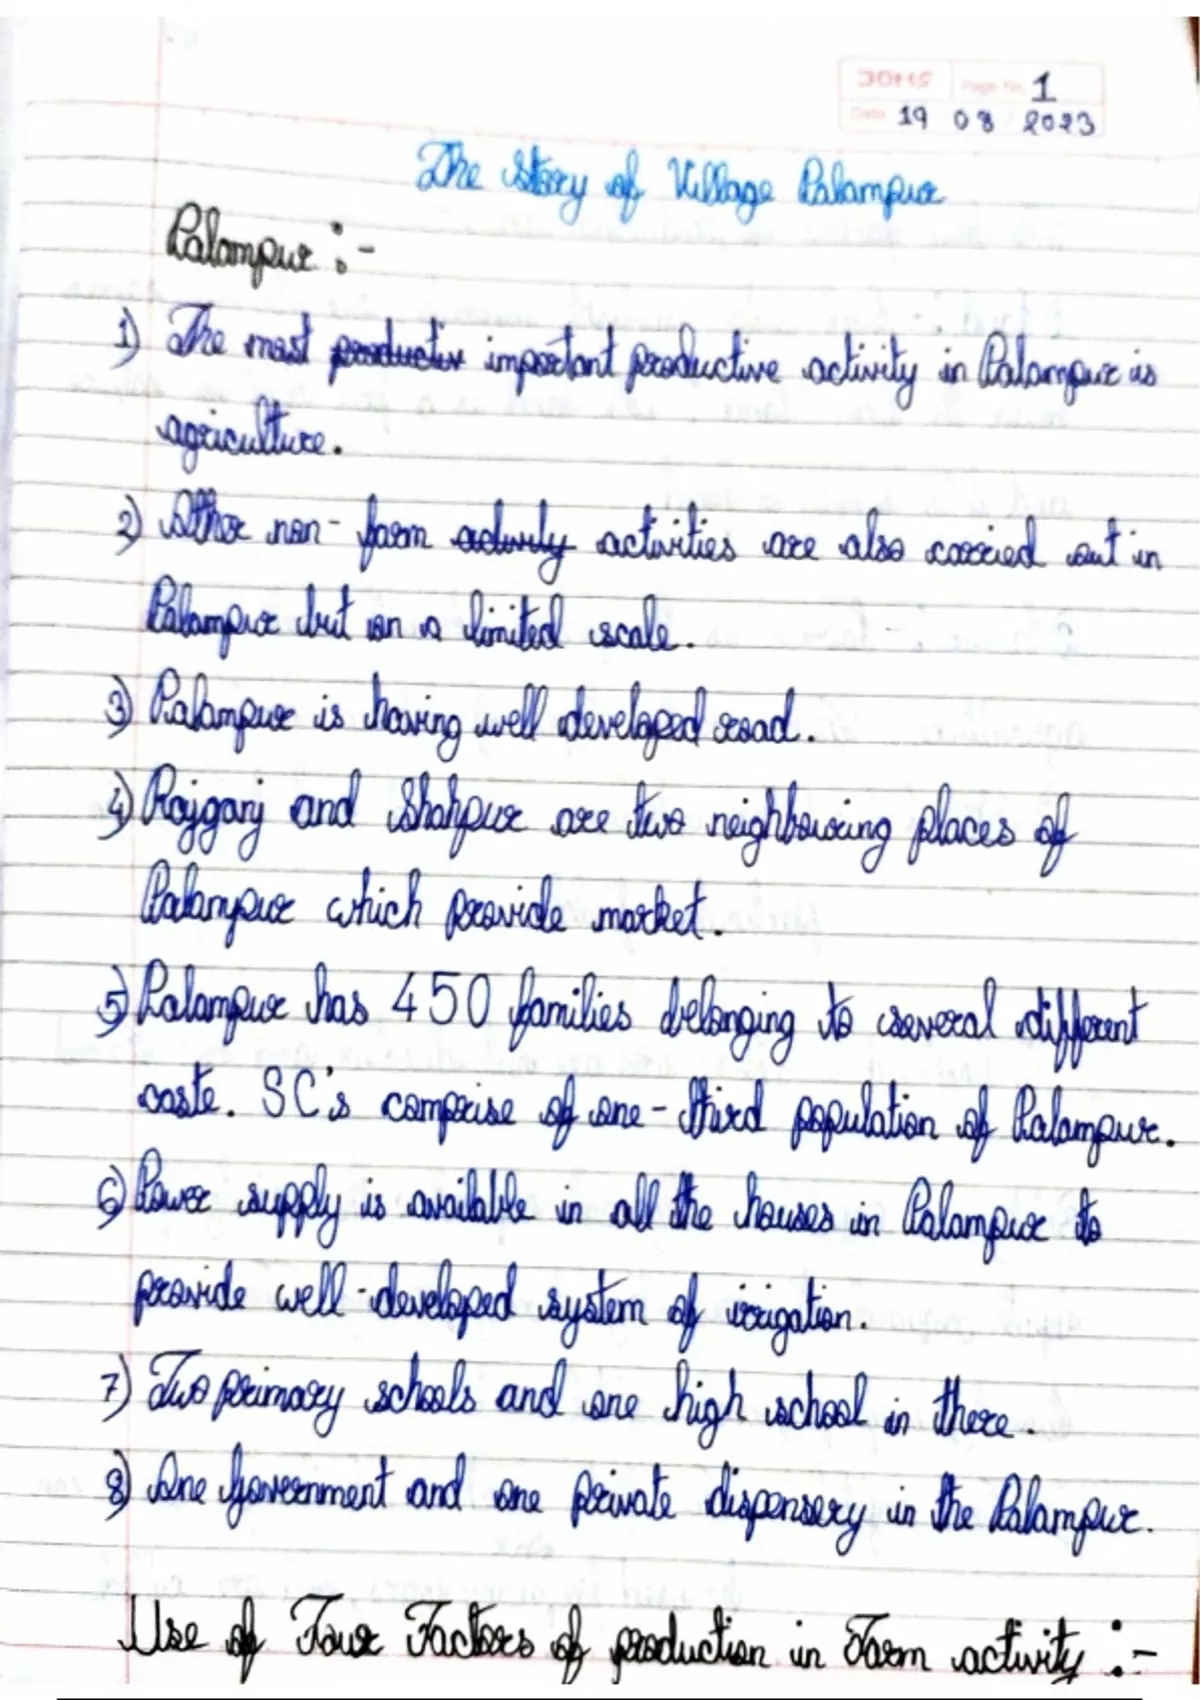 JOMS Page No. 1
Date 19 08 2023
The story of Village Palampur
Palampur :-
1) The most productiv important productive activity in Palampur is
agriculture.
2) Other non-farm activity activities are also carried out in
Palampur but on a limited scale.
3) Palampur is having well developed road.
4) Rajganj and Shahpur are two neighbouring places of
Palampur which provide market.
5) Palampur has 450 families belonging to several different
caste. SC's comprise of one-third population of Palampur.
6) Power supply is available in all the houses in Palampur to
provide well-developed system of irrigation.
7) Two primary schools and one high school in there.
8) One Government and one private dispensery in the Palampur.
Use of Four Factors of production in Farm activity :-